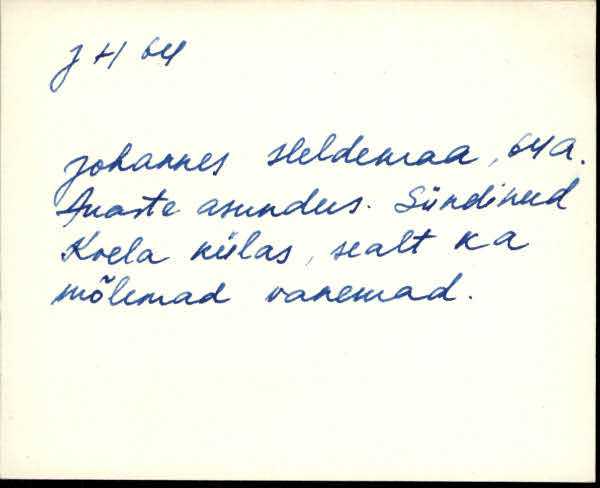 J H 64
Johannes Heldemaa, 64 a.
Avaste asundus. Sündinud
Koela külas, sealt ka
mõlemad vanemad.